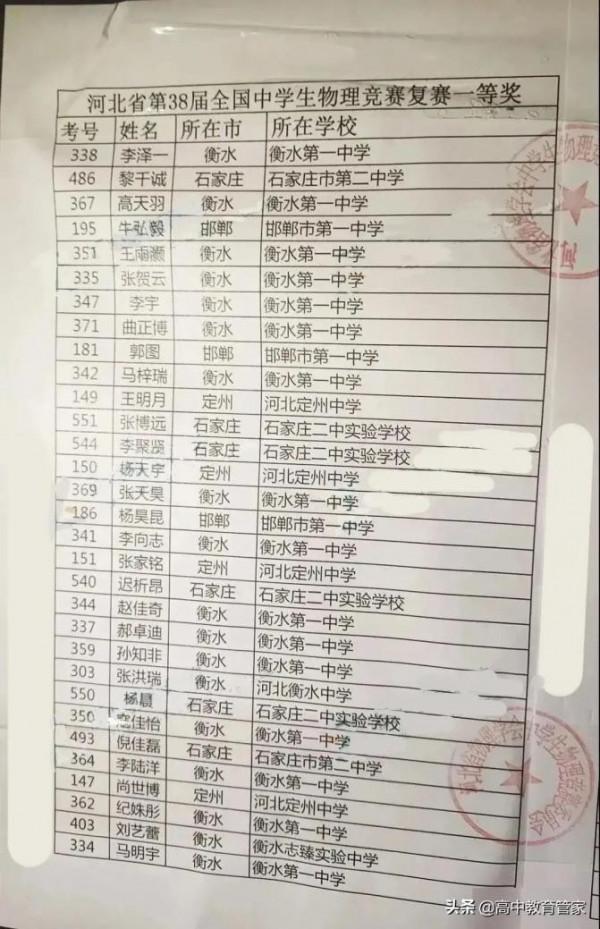 河北省第38届全国中学生物理竞赛复赛一等奖
考号 姓名 所在市 所在学校
338 李泽一 衡水 衡水第一中学
486 黎千诚 石家庄 石家庄市第二中学
367 高天羽 衡水 衡水第一中学
195 牛弘毅 邯郸 邯郸市第一中学
351 王雨灏 衡水 衡水第一中学
335 张贺云 衡水 衡水第一中学
347 李宇 衡水 衡水第一中学
371 曲正博 衡水 衡水第一中学
181 郭图 邯郸 邯郸市第一中学
342 马梓瑞 衡水 衡水第一中学
149 王明月 定州 河北定州中学
551 张博远 石家庄 石家庄二中实验学校
544 李聚贤 石家庄 石家庄二中实验学校
150 杨天宇 定州 河北定州中学
369 张天昊 衡水 衡水第一中学
186 杨昊昆 邯郸 邯郸市第一中学
341 李向志 衡水 衡水第一中学
151 张家铭 定州 河北定州中学
540 迟析昂 石家庄 石家庄二中实验学校
344 赵佳奇 衡水 衡水第一中学
337 郝卓迪 衡水 衡水第一中学
359 孙知非 衡水 衡水第一中学
303 张洪瑞 衡水 河北衡水中学
550 杨晨 石家庄 石家庄二中实验学校
350 佳怡 衡水 衡水第一中学
493 倪佳磊 石家庄 石家庄市第二中学
364 李陆洋 衡水 衡水第一中学
147 尚世博 定州 河北定州中学
362 纪姝彤 衡水 衡水第一中学
403 刘艺蕾 衡水 衡水志臻实验中学
334 马明宇 衡水 衡水第一中学
头条 @高中教育管家